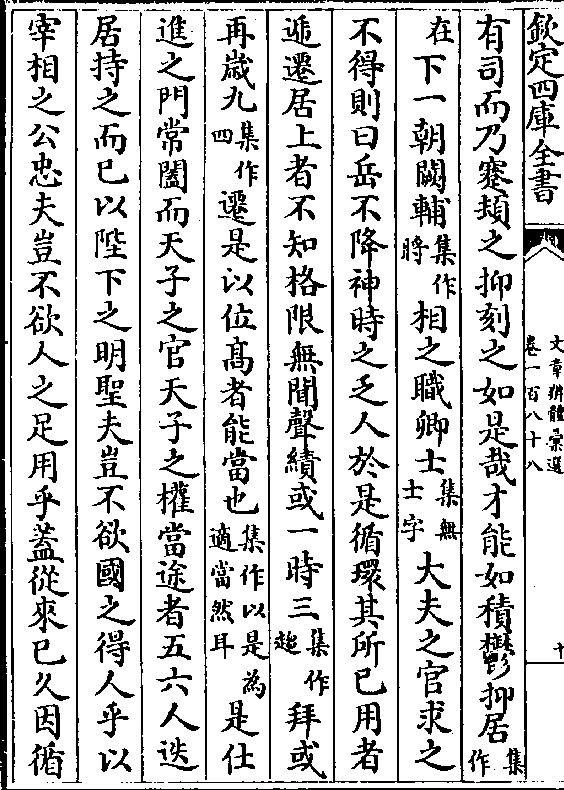 欽定四庫全書
文章辨體彙選
卷一百八十八
十
有司而乃蹇頞之抑刻之如是哉才能如積鬱抑居集作
在下一朝闕輔集作將相之職卿士集無士字大夫之官求之
不得則曰岳不降神時之乏人於是循環其所已用者
遞遷居上者不知格限無聞聲績或一時三集作超拜或
再歲九集作四遷是以位髙者能當也集作以是為適當然耳是仕
進之門常闔而天子之官天子之權當途者五六人迭
居持之而已以陛下之明聖夫豈不欲國之得人乎以
宰相之公忠夫豈不欲人之足用乎葢從來已久因循